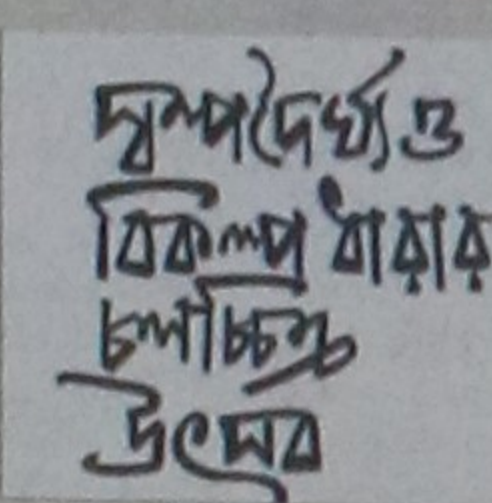 স্বল্পদৈর্ঘ্য ও
বিকল্প ধারার
চলচ্চিত্র
উৎসব